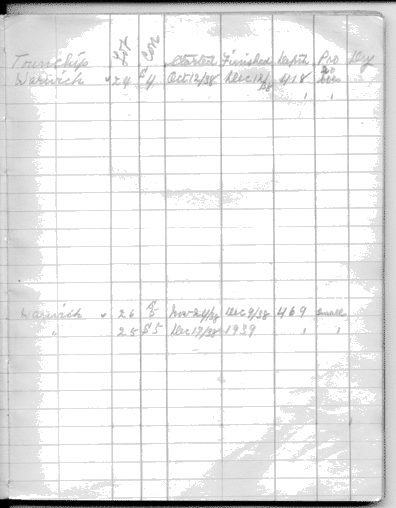 Township Lot Con Started Finished Depth Pro Dry
Warwick 24 4 Oct 12/38 Dec 12/38 418
Warwick 26 5 Nov 24/38 Dec 9/38 469 Small
" 25 5 Dec 17/38 1939 " "